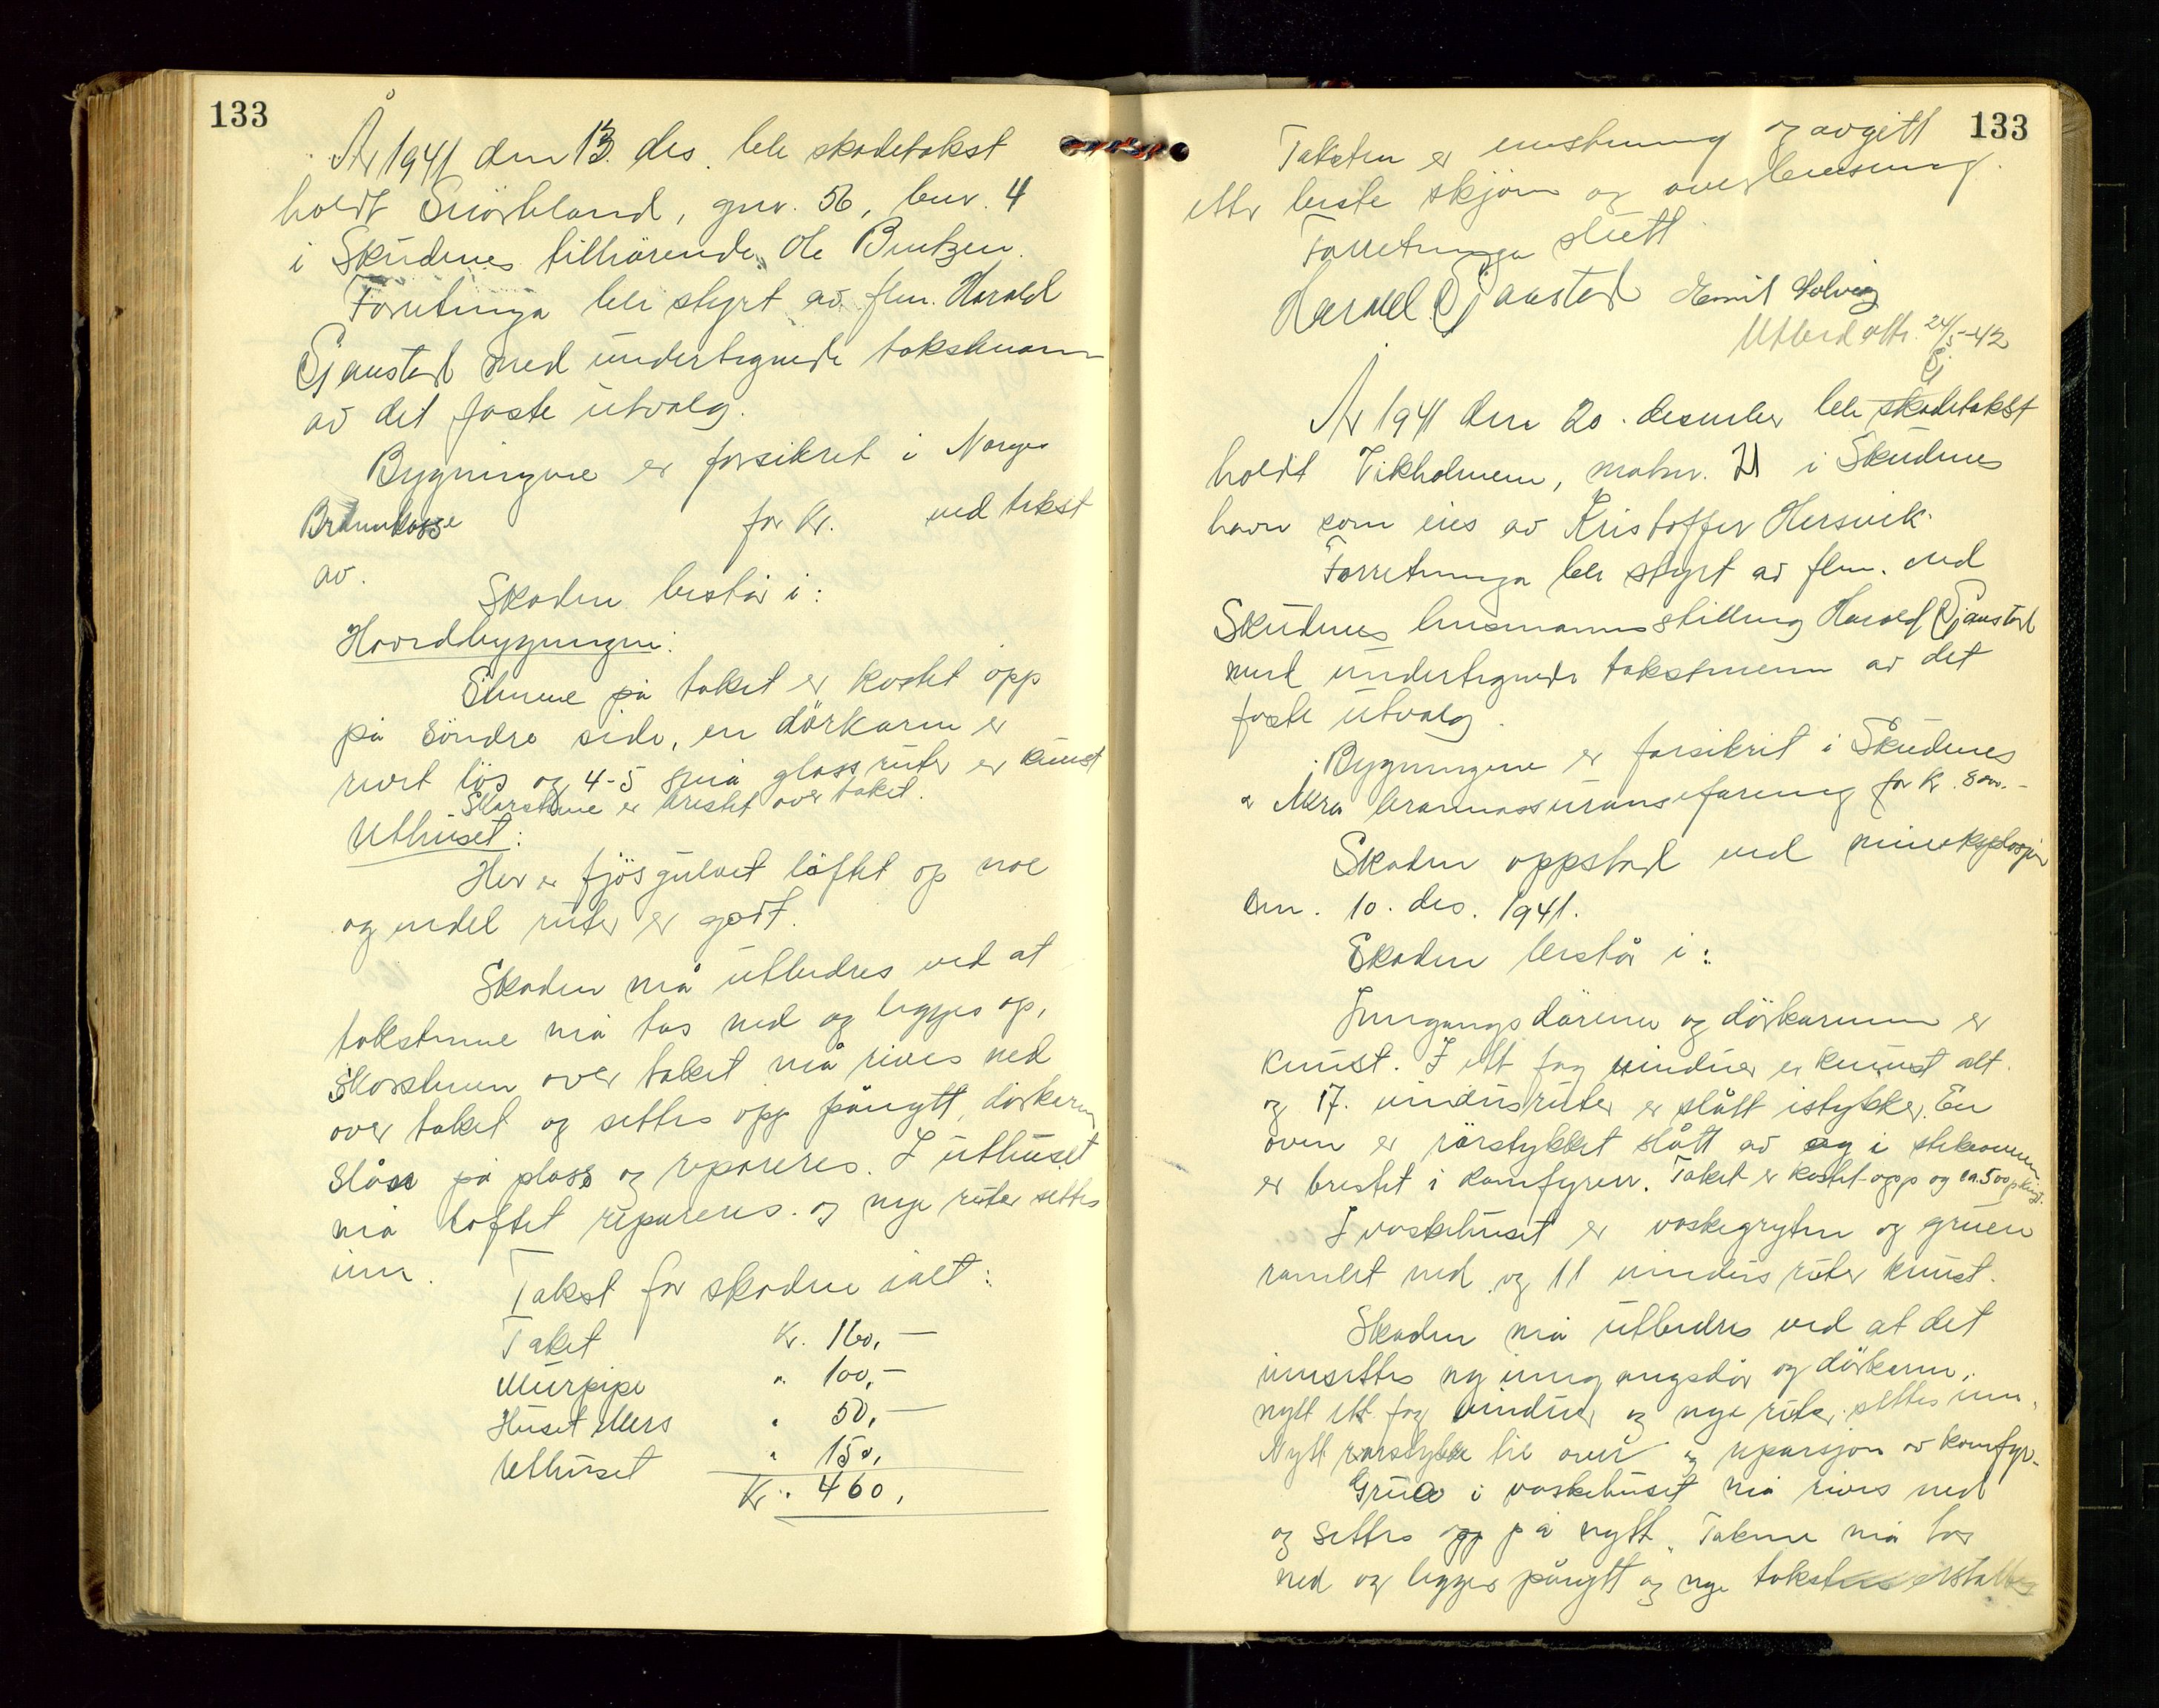 133
År 1941 den 13. des. ble skadetakst
holdt Snörteland, gnr. 56, bnr. 4
i Skudenes tilhörende Ole Bentzen.
Forretninga ble styrt av flm. Harald
Sjaustad med undertegnede takstmenn
av det faste utvalg.
Bygningene er forsikret i Norges
Brannkasse for kr. ved takst
av.
Skaden består i:
Hovedbygningen:
Stenene på taket er kastet opp
på söndre side, en dörkarm er
revet lös og 4-5 små glassruter er knust
Skorstene er bristet over taket.
Uthuset:
Her er fjösgulvet löftet op noe
og endel ruter er gått.
Skaden må utbedres ved at
takstenene må tas ned og legges op,
Skorstenen over taket må rives ned
over taket og settes opp pånytt, dörkarm
slåes på plass og repareres. I uthuset
må loftet repareres og nye ruter settes
inn.
Takst for skadene ialt:
Taket Kr. 160,—
Murpipe " 100,—
Huset ellers " 50,—
Uthuset " 150,
Kr. 460,
133
Taksten er enstemmig og avgitt
etter beste skjönn og overbevisning.
Forretninga slutt
Harald Sjaustad Emil Solvig
Utferd att. 24/5-42
Sj
År 1941 den 20. desember ble skadetakst
holdt Vikholmen, matnr. 21 i Skudenes
havn som eies av Kristoffer Hersvik.
Forretninga ble styrt av flm. ved
Skudenes lensmannsstilling Harald Sjaustad
med undertegnede takstmenn av det
faste utvalg.
Bygningene er forsikret i Skudenes
o Akra brannassuranseforening for kr. 800.-
Skaden oppstod ved mineeksplosjon
den. 10. des. 1941.
Skaden består i:
Inngangsdörene og dörkarmen er
knust. I ett fag vinduer er knust alt.
og 17. vindusruter er slått istykker. En
oven er rörstykket slått av og i stekeovnen
er bristet i komfyren. Taket er kastet opp og ca. 500
I vaskehuset er vaskegryten og gruen
ramlet ned og 11 vindus ruter knust.
Skaden må utbedres ved at det
innsettes ny inngangsdör og dörkarm,
nytt ett fag vinduer og nye ruter settes inn,
Nytt rörstykke til oven og reparsjon av komfyr.
Grue i vaskehuset må rives ned
og settes opp på nytt. Takene må tas
ned og legges pånytt og nye taksten erstattes